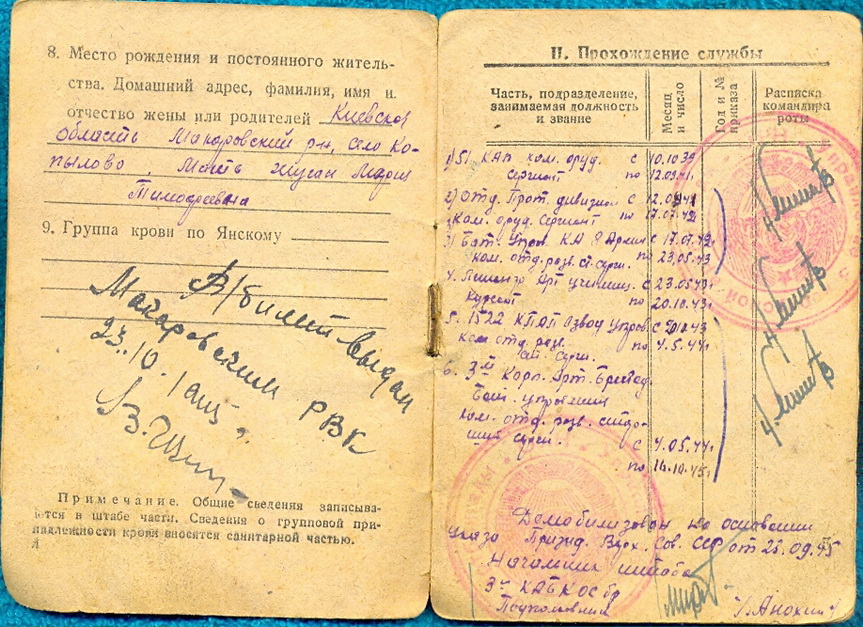 8. Место рождения и постоянного житель-
ства. Домашний адрес, фамилия, имя и
отчество жены или родителей Киевская
область Макаровский р-н, село Ко-
пылово, Мать Мария
Тимофеевна
9. Группа крови по Янскому
В/билет выдан
Макаровским РВК
23.10.1945 г.
Примечание. Общие сведения записыва-
ются в штабе части. Сведения о групповой при-
надлежности крови вносятся санитарной частью.
II. Прохождение службы
Часть, подразделение,
занимаемая должность
и звание
Месяц
и число
Год и №
приказа
Расписка
командира
роты
1) 51 КАП ком. оруд. с 10.10.39
Сержант по 12.09.41.
2) Отд. Прот. дивизион с 12.09.41
Ком. оруд. Сержант по 17.07.42
3) Бат. Упров. КА 8 Армии с 17.07.42г
ком. отд. разв. ст. серж. по 23.05.43
4. Арт училищ. с 23.05.43г
курсант по 20.10.43
5. 1522 КПАП Взвод Упров с 43
Ком отд. разв.
ст. серж. по 4.5.44г
6. 3й Корп. Арт. Бригад.
Бат. управления
Ком. отд. разв. стар-
ший серж. с 4.05.44г
по 16.10.45г
Демобилизован на основании
указа През. Верх. Сов. СССР от 25.09.45
Начальник штаба
3й
Подполковник /Анохин/